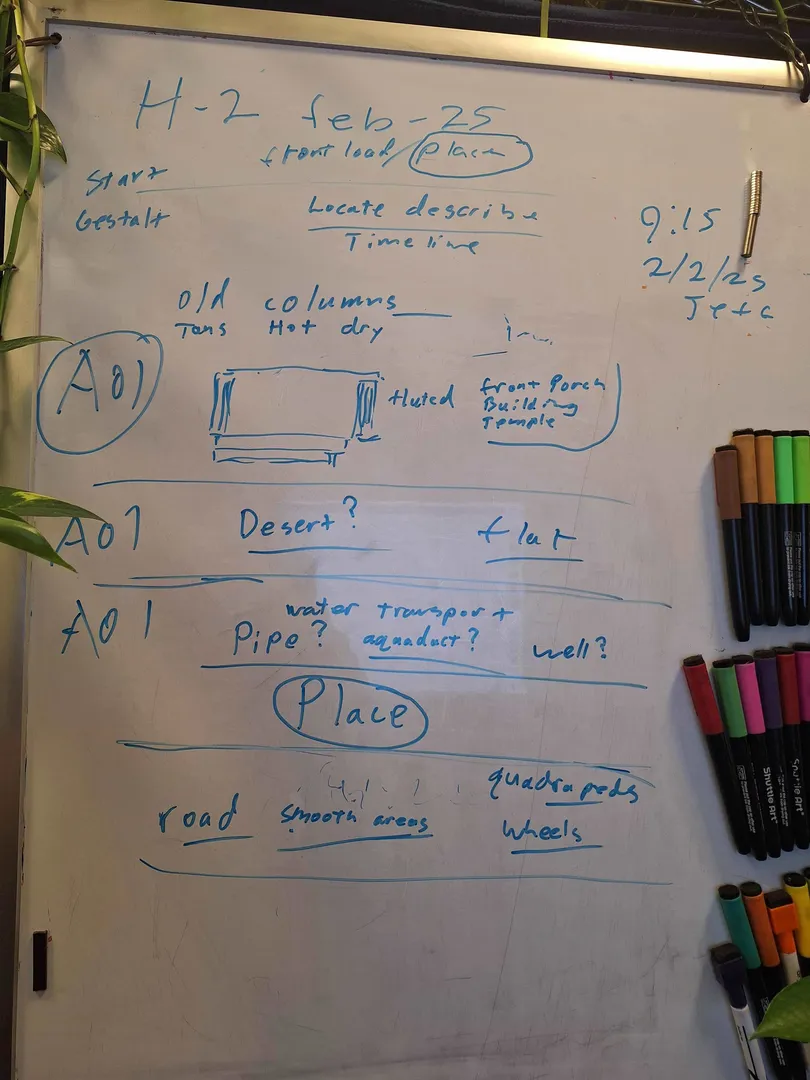 H-2 feb-25
front load/place
Start
Gestalt
Locate describe
Timeline
9:15
2/2/25
old columns
Tans Hot dry
A01
fluted
front Porch
Building
Temple
A01 Desert? flat
A01 water transport
Pipe? aquaduct? well?
Place
quadrapeds
road smooth areas wheels
Shuttle Art
Shuttle Art